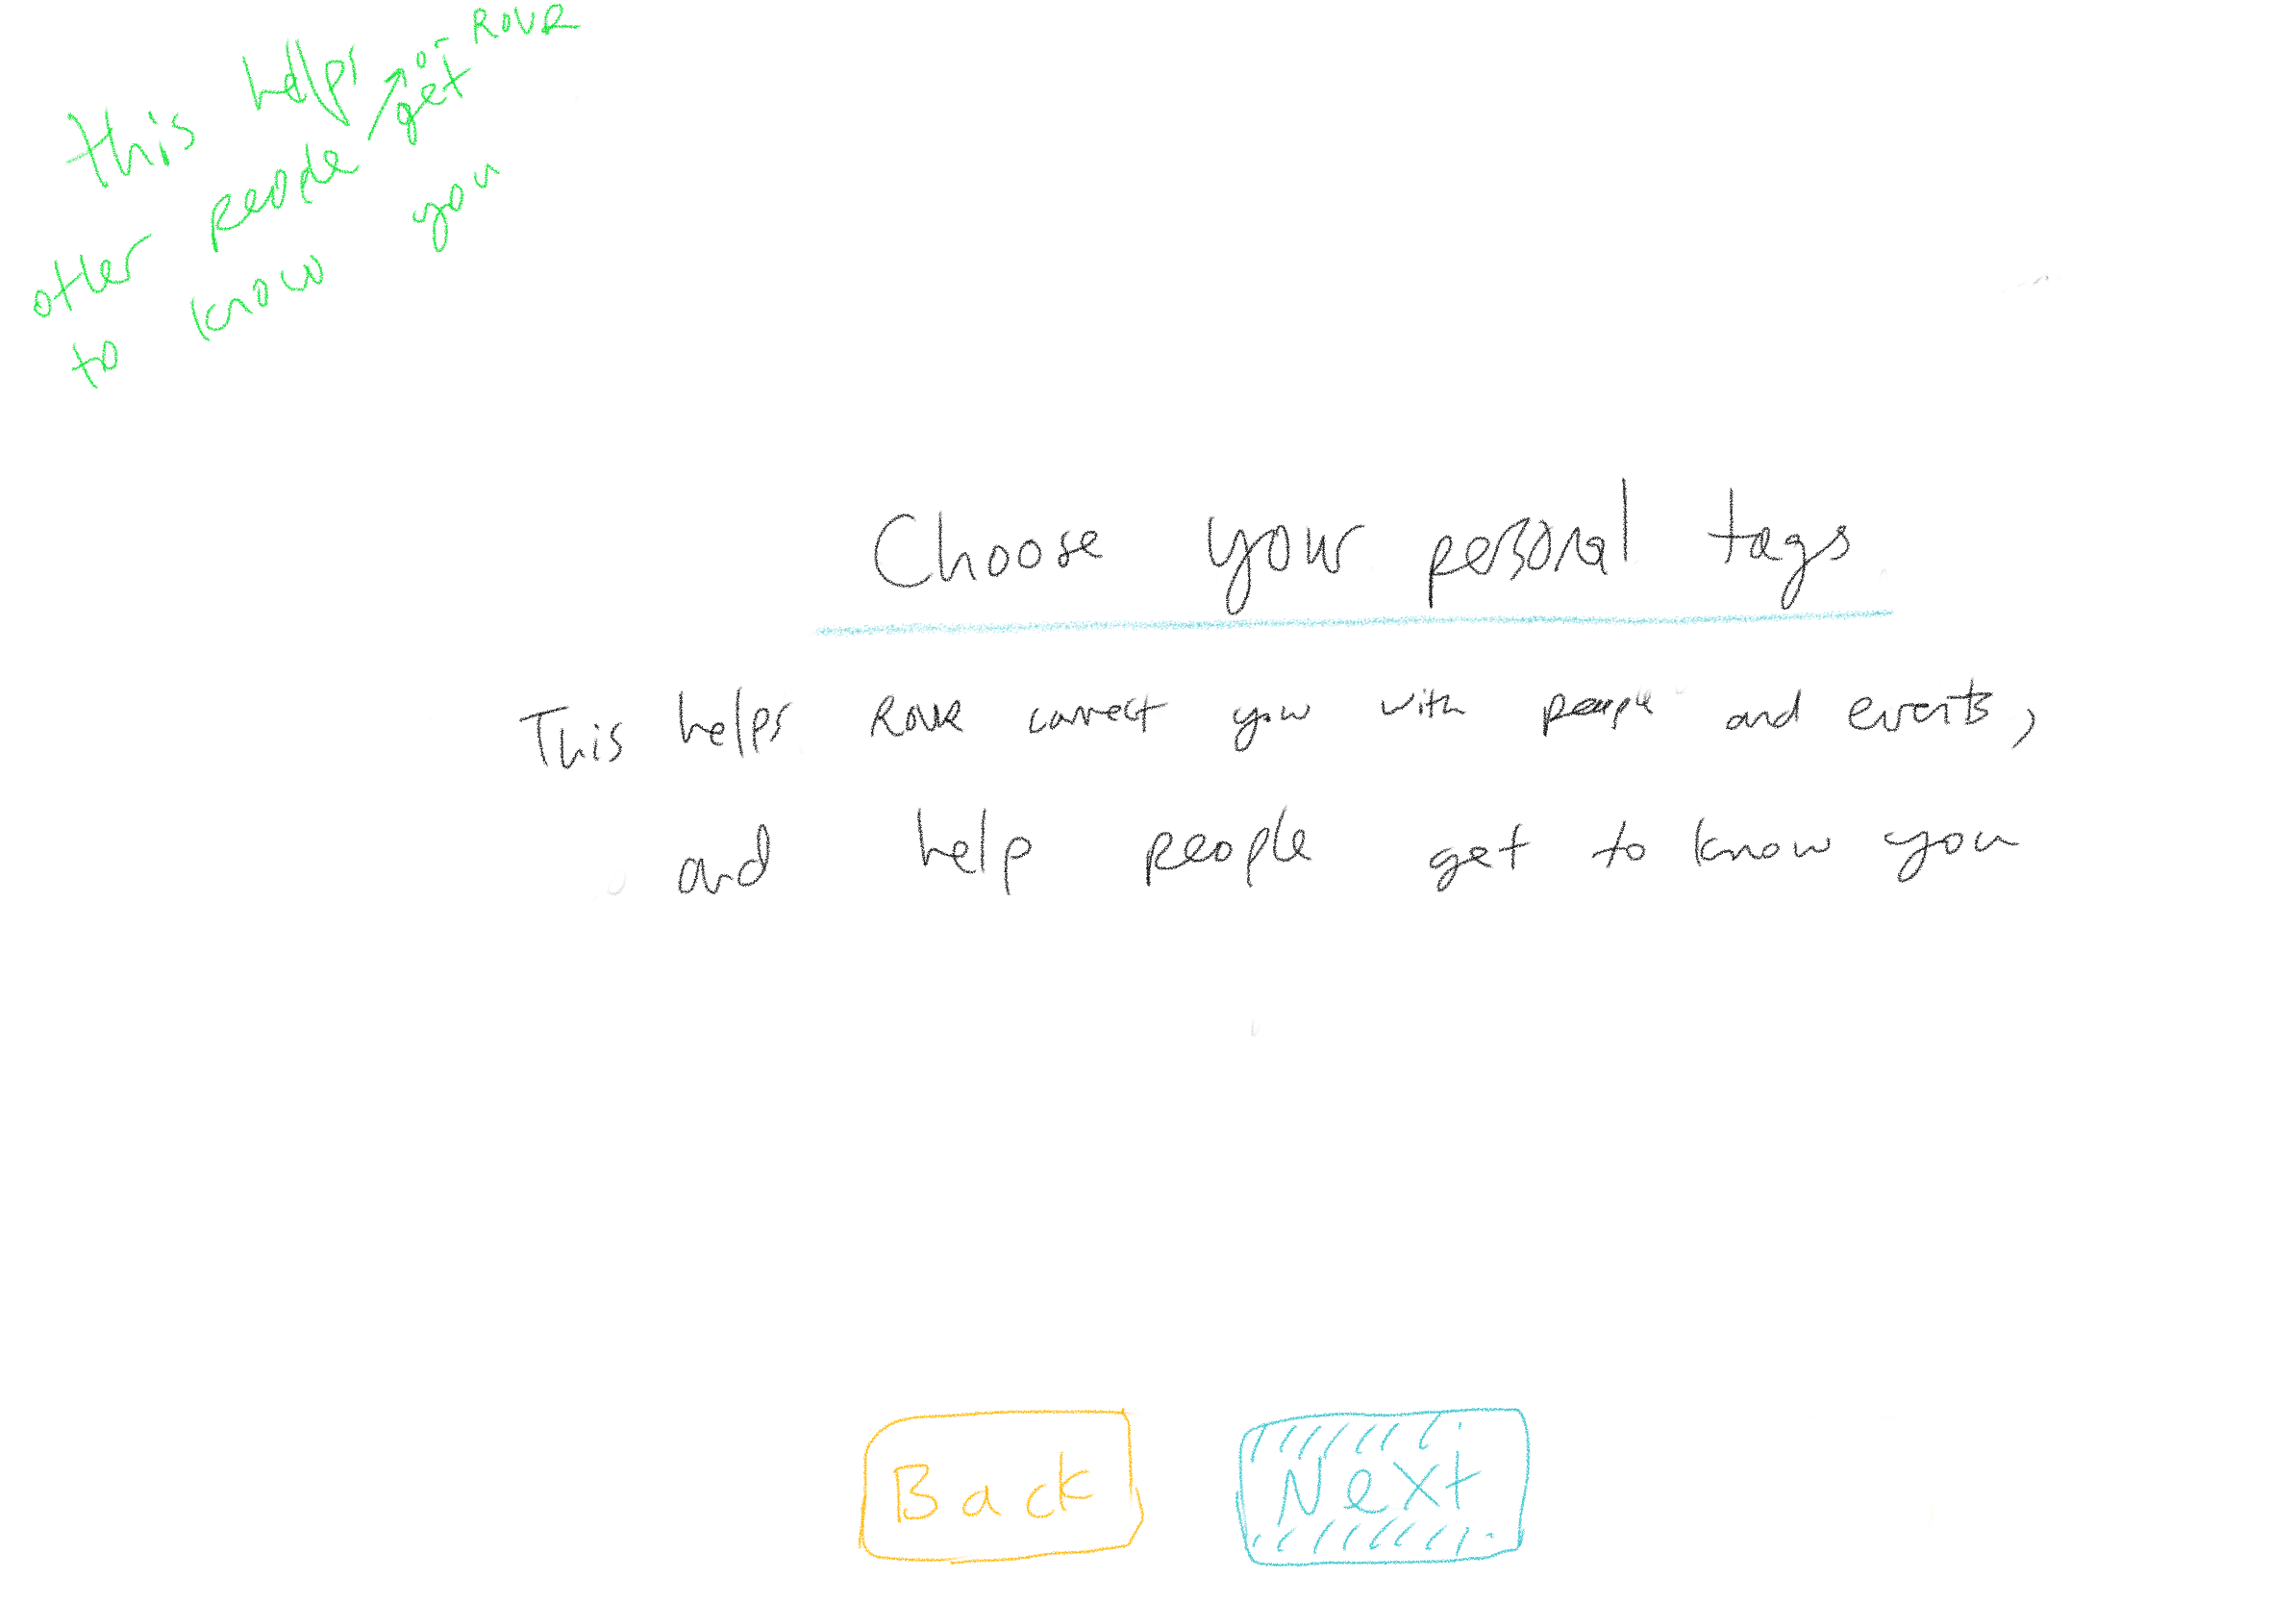 this helps
other people get
or ROVR
to know you
Choose your personal tags
This helps ROVR connect you with people and events,
and help people get to know you
Back
Next